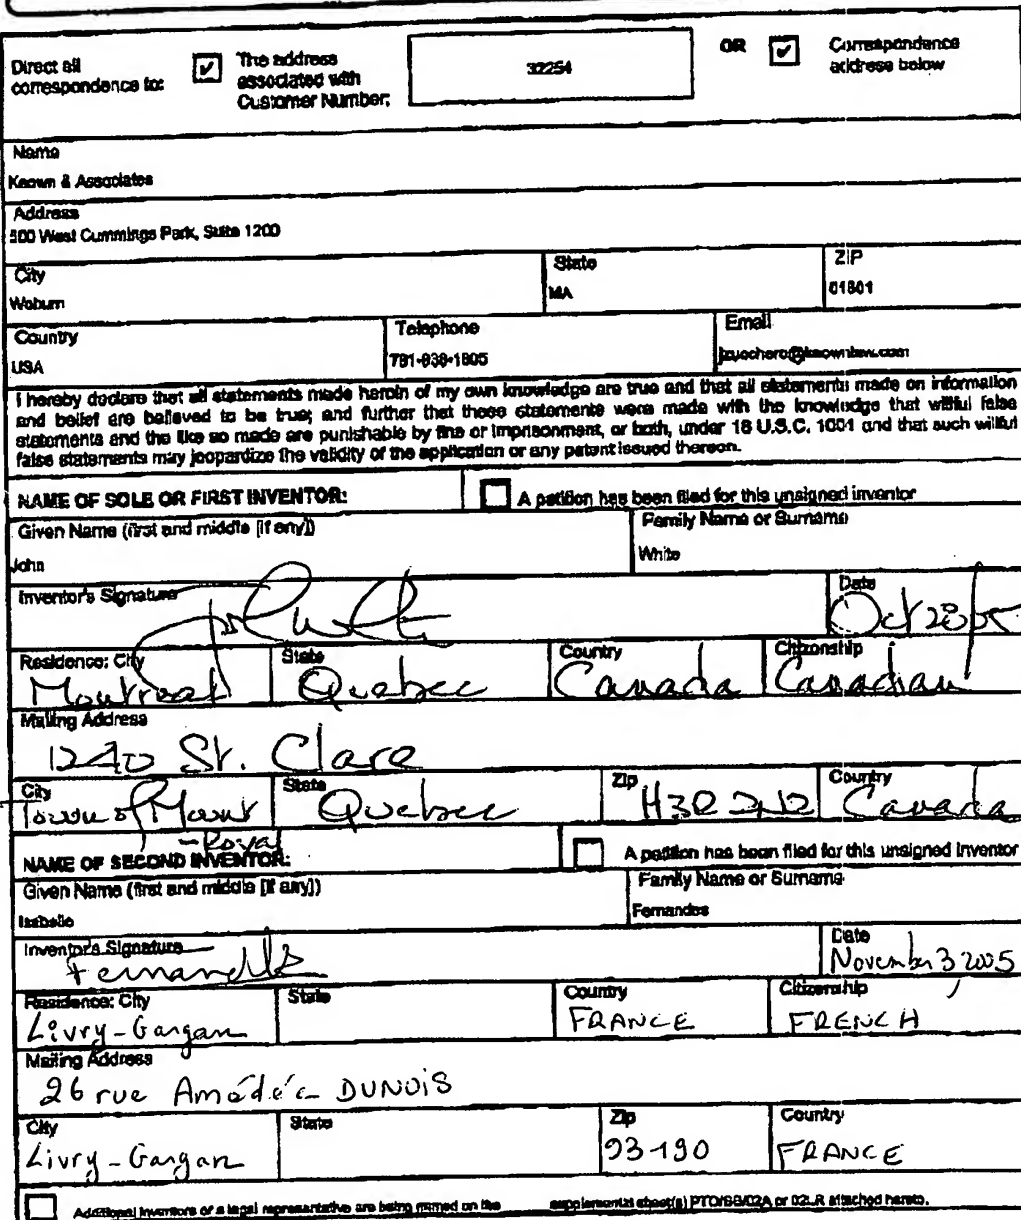 Direct all correspondence to: ☑ The address associated with Customer Number: 32254 OR ☑ Correspondence address below
Name
Keown & Associates
Address
500 West Cummings Park, Suite 1200
City State ZIP
Woburn MA 01801
Country Telephone Email
USA 781-938-1805
I hereby declare that all statements made herein of my own knowledge are true and that all statements made on information
and belief are believed to be true; and further that these statements were made with the knowledge that willful false
statements and the like so made are punishable by fine or imprisonment, or both, under 18 U.S.C. 1001 and that such willful
false statements may jeopardize the validity of the application or any patent issued thereon.
NAME OF SOLE OR FIRST INVENTOR: ☐ A petition has been filed for this unsigned inventor
Given Name (first and middle [if any]) Family Name or Surname
John White
Inventor's Signature Date
Oct 20/05
Residence: City State Country Citizenship
Montreal Quebec Canada Canadian
Mailing Address
1240 St. Clare
City State Zip Country
Town of Mount - Royal Quebec Canada
NAME OF SECOND INVENTOR: ☐ A petition has been filed for this unsigned inventor
Given Name (first and middle [if any]) Family Name or Surname
Isabelle Fernandes
Inventor's Signature Date
Fernandes November 3 2005
Residence: City State Country Citizenship
Livry-Gargan FRANCE FRENCH
Mailing Address
26 rue Amédée DUNOIS
City State Zip Country
Livry-Gargan 93-190 FRANCE
☐ Additional inventors or a legal representative are being named on the supplemental sheet(s) PTO/SB/02A or 02LR attached hereto.